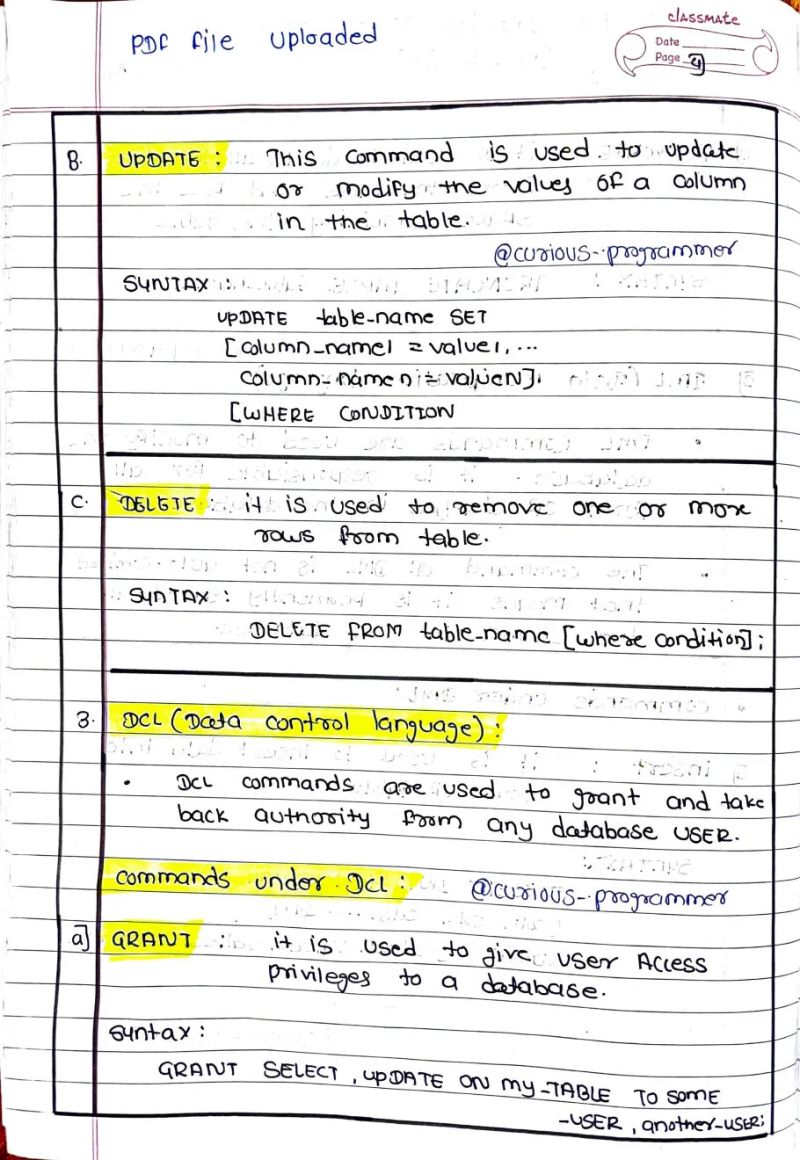 classmate
PDF file uploaded
Date
Page 4
B. UPDATE : This command is used to update
or modify the values of a column
in the table.
@curious-programmer
SYNTAX :
UPDATE table-name SET
[column_name1 = value1, ...
column-name n = valueN].
[WHERE CONDITION
C. DELETE : it is used to remove one or more
rows from table.
SYNTAX :
DELETE FROM table-name [where condition];
3. DCL (Data control language) :
• DCL commands are used to grant and take
back authority from any database USER.
commands under DCL : @curious-programmer
a] GRANT : it is used to give user Access
privileges to a database.
Syntax :
GRANT SELECT, UPDATE ON MY-TABLE TO SOME
-USER, another-USER;